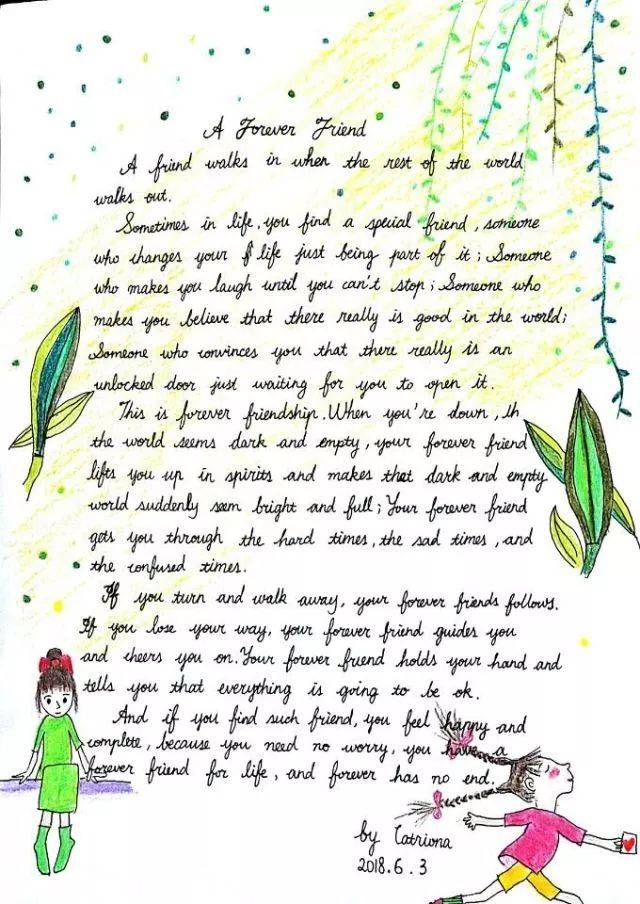 A Forever Friend
A friend walks in when the rest of the world
walks out.
Sometimes in life, you find a special friend, someone
who changes your life just being part of it; Someone
who makes you laugh until you can't stop; Someone who
makes you believe that there really is good in the world;
Someone who convinces you that there really is an
unlocked door just waiting for you to open it.
This is forever friendship. When you're down, th
the world seems dark and empty, your forever friend
lifts you up in spirits and makes that dark and empty
world suddenly seem bright and full; Your forever friend
gets you through the hard times, the sad times, and
the confused times.
If you turn and walk away, your forever friends follows.
If you lose your way, your forever friend guides you
and cheers you on. Your forever friend holds your hand and
tells you that everything is going to be ok.
And if you find such friend, you feel happy and
complete, because you need no worry, you have a
forever friend for life, and forever has no end.
by Catriona
2018.6.3